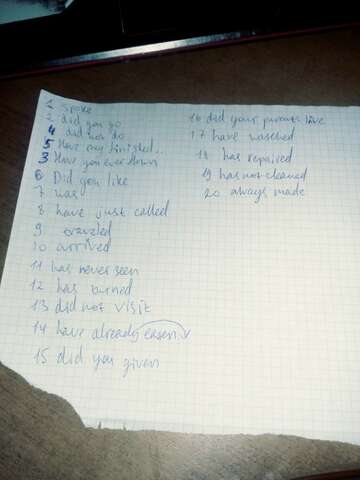 1 spoke
2 did you go
4 did not do
5 Have any finished...
3 Have you ever flown
6 Did you like
7 was
8 have just called
9 traveled
10 arrived
11 has never seen
12 has burned
13 did not visit
14 have already easen
15 did you given
16 did your parents live
17 have waschd
18 has repaired
19 has not cleaned
20 always made